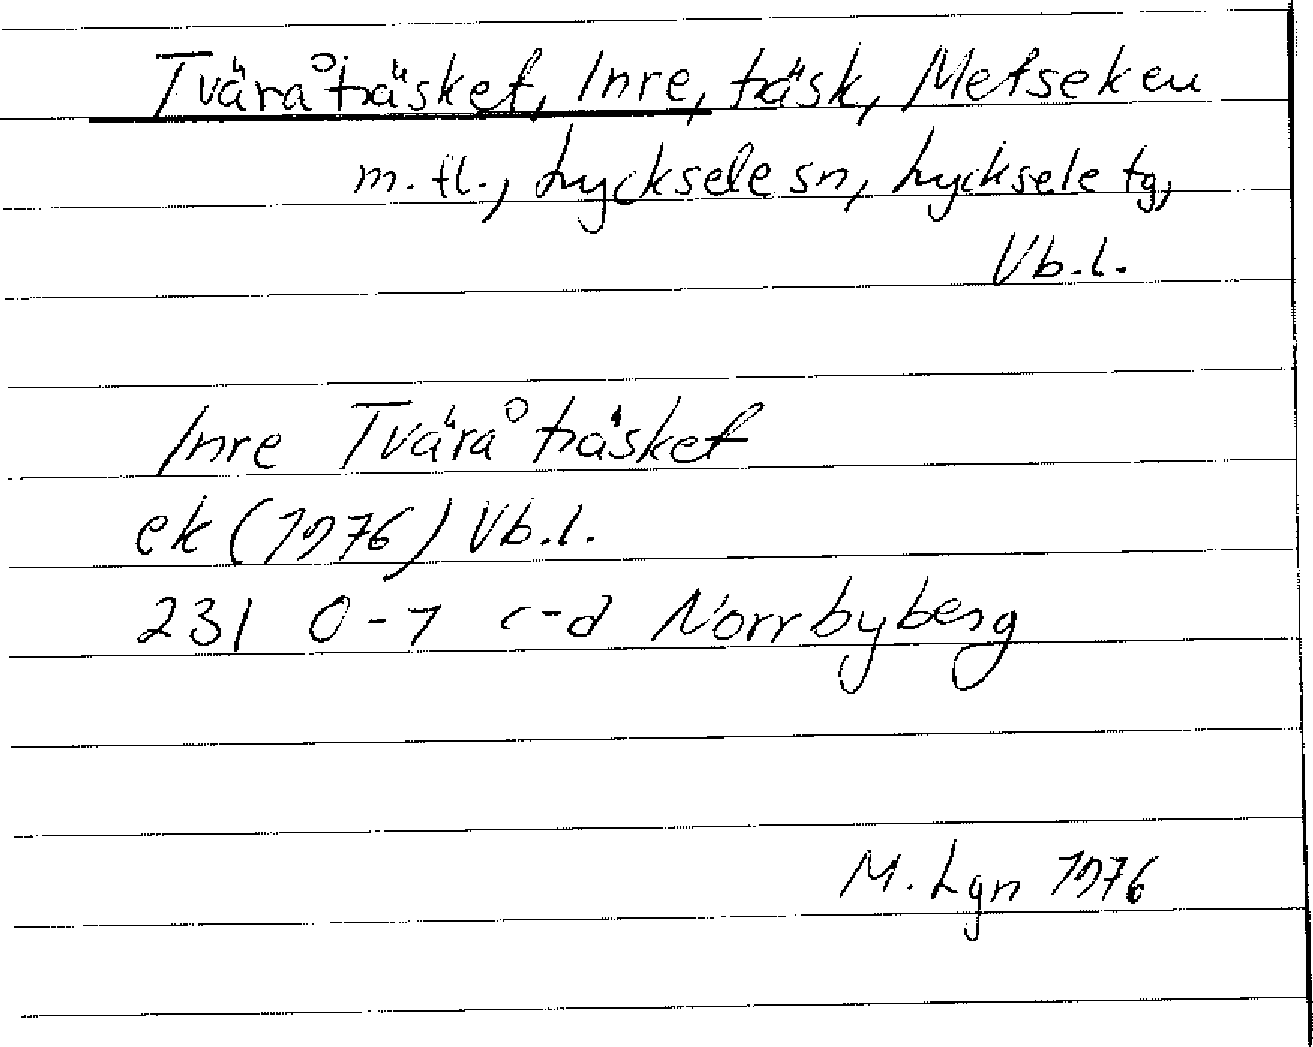 Tväråträsket, Inre, träsk, Metseken
m.fl., Lycksele sn, Lycksele tg,
Vb.l.
Inre Tväråträsket
ek (1976) Vb.l.
23I 0-1 c-d Norrbyberg
M. Lgn 1976